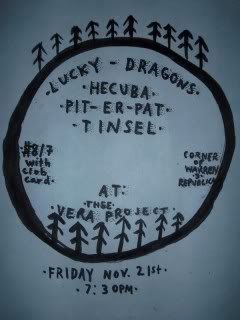 LUCKY - DRAGONS
·HECUBA·
PIT-ER-PAT·
·TINSEL·
$8/7
with
club
card·
CORNER
OF
WARREN
REPUBLICAN
AT:
·THE·
VERA PROJECT
·FRIDAY NOV. 21st·
·7:30PM·